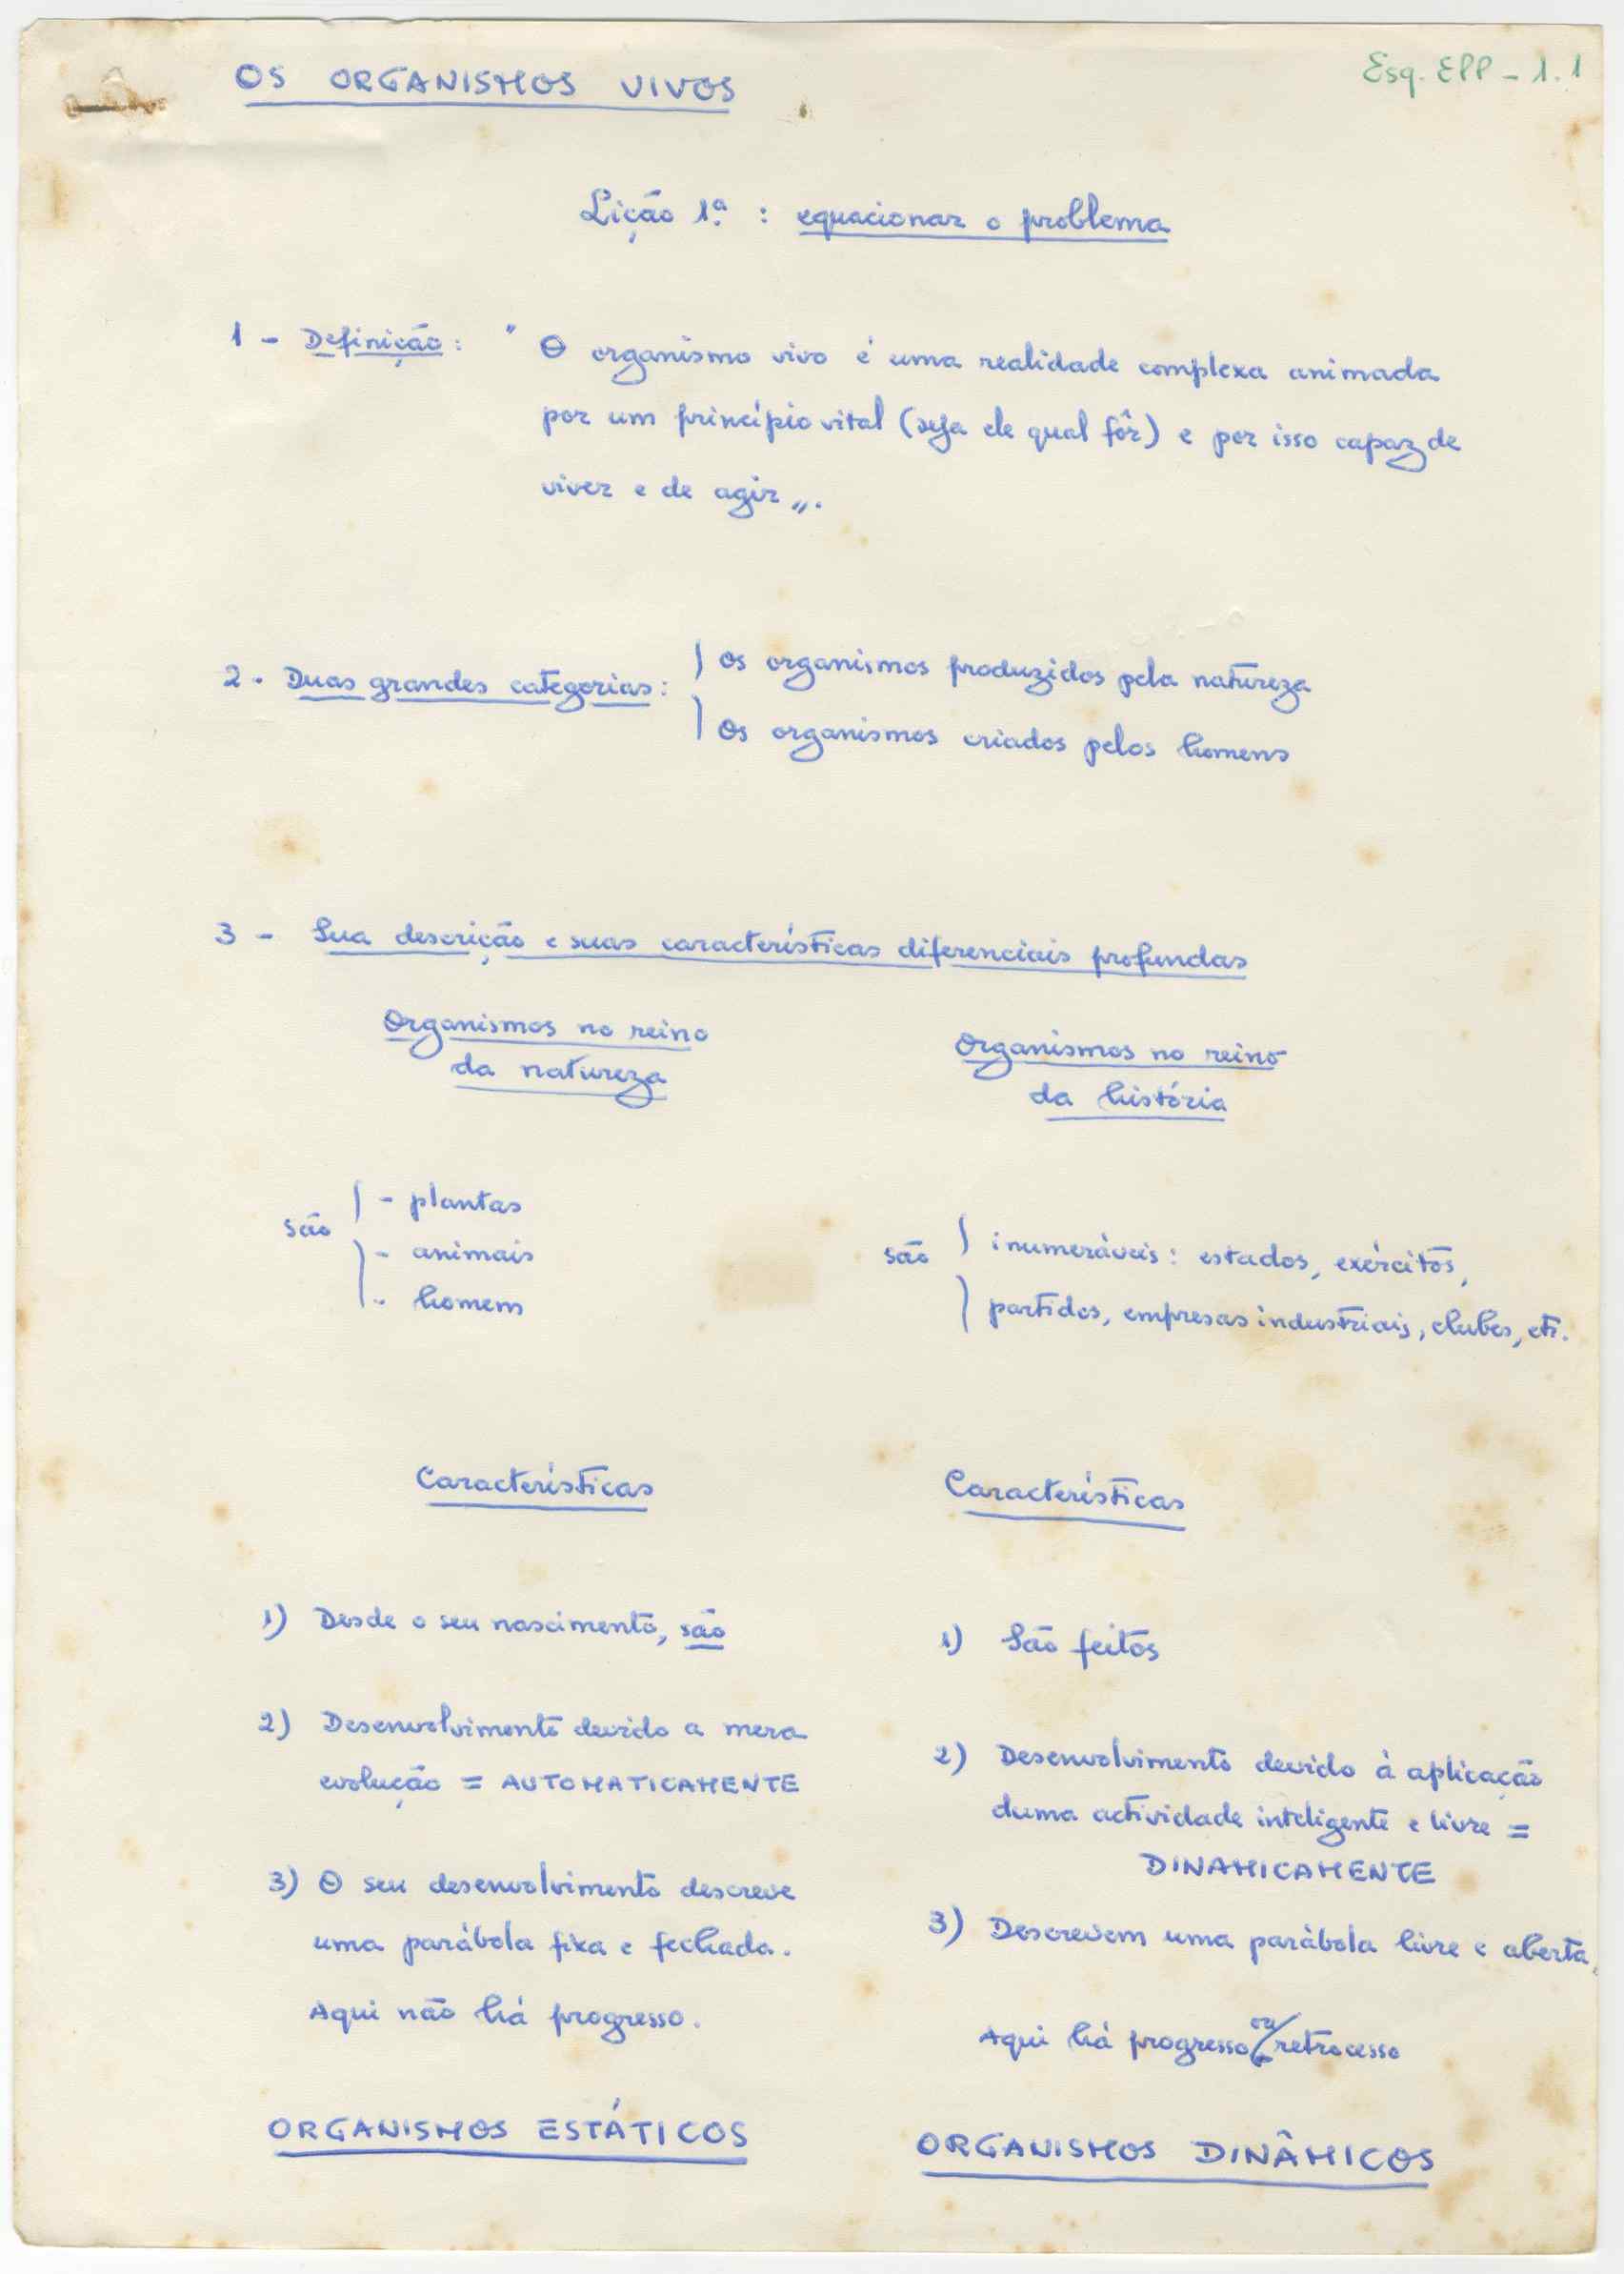 OS ORGANISMOS VIVOS
Esq. EPP - 1.1
Lição 1ª : equacionar o problema
1 - Definição : " O organismo vivo é uma realidade complexa animada
por um princípio vital (seja ele qual fôr) e por isso capaz de
viver e de agir ".
2 - Duas grandes categorias :
Os organismos produzidos pela natureza
Os organismos criados pelos homens
3 - Sua descrição e suas características diferenciais profundas
Organismos no reino
da natureza
são
- plantas
- animais
- homem
Características
1) Desde o seu nascimento, são
2) Desenvolvimento devido a mera
evolução = AUTOMATICAMENTE
3) O seu desenvolvimento descreve
uma parábola fixa e fechada.
Aqui não há progresso.
ORGANISMOS ESTÁTICOS
Organismos no reino
da história
são
inumeráveis : estados, exércitos,
partidos, empresas industriais, clubes, etc.
Características
1) São feitos
2) Desenvolvimento devido à aplicação
duma actividade inteligente e livre =
DINAMICAMENTE
3) Descrevem uma parábola livre e aberta.
Aqui há progresso ou retrocesso
ORGANISMOS DINÂMICOS